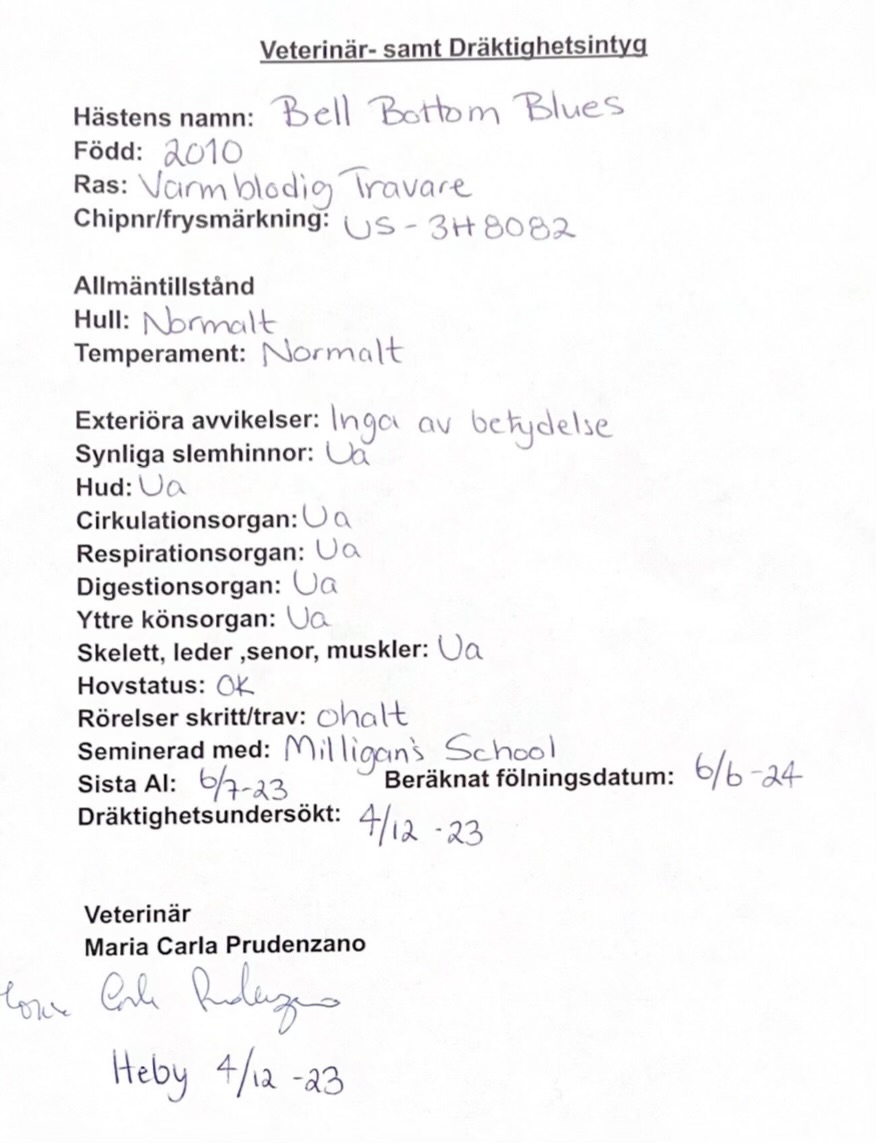 Veterinär- samt Dräktighetsintyg
Hästens namn: Bell Bottom Blues
Född: 2010
Ras: Varmblodig Travare
Chipnr/frysmärkning: US-3H8082
Allmäntillstånd
Hull: Normalt
Temperament: Normalt
Exteriöra avvikelser: Inga av betydelse
Synliga slemhinnor: Ua
Hud: Ua
Cirkulationsorgan: Ua
Respirationsorgan: Ua
Digestionsorgan: Ua
Yttre könsorgan: Ua
Skelett, leder ,senor, muskler: Ua
Hovstatus: OK
Rörelser skritt/trav: ohalt
Seminerad med: Milligan's School
Sista AI: 6/7-23 Beräknat fölningsdatum: 6/6-24
Dräktighetsundersökt: 4/12 -23
Veterinär
Maria Carla Prudenzano
Carla Prudenzano
Heby 4/12 -23